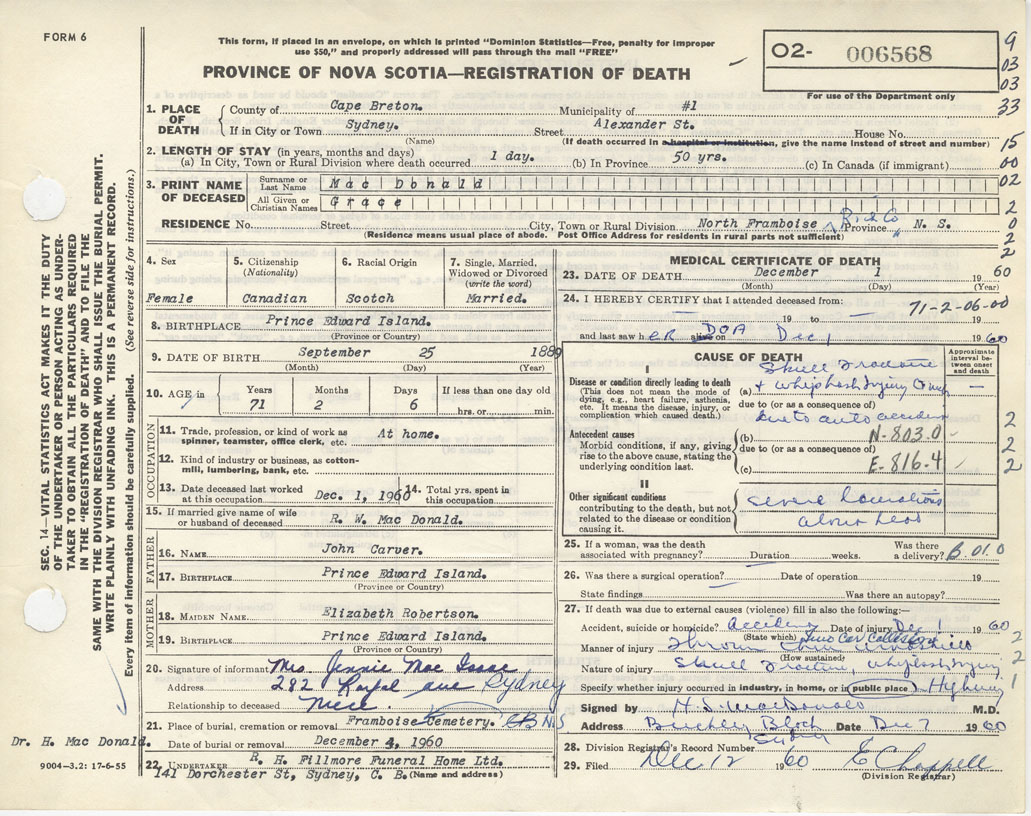 FORM 6
This form, if placed in an envelope, on which is printed "Dominion Statistics—Free, penalty for improper
use $50," and properly addressed will pass through the mail "FREE"
PROVINCE OF NOVA SCOTIA—REGISTRATION OF DEATH
O2- 006568
For use of the Department only
9
03
03
33
15
00
02
2
0
2
2
1. PLACE OF DEATH
County of Cape Breton. Municipality of #1
If in City or Town Sydney. Street Alexander St. House No.
(Name) (If death occurred in a hospital or institution, give the name instead of street and number)
2. LENGTH OF STAY (in years, months and days)
(a) In City, Town or Rural Division where death occurred 1 day. (b) In Province 50 yrs. (c) In Canada (if immigrant)
3. PRINT NAME OF DECEASED
Surname or Last Name Mac Donald
All Given or Christian Names Grace
RESIDENCE No. Street City, Town or Rural Division North Framboise Rich Co Province N. S.
(Residence means usual place of abode. Post Office Address for residents in rural parts not sufficient)
SEC. 14—VITAL STATISTICS ACT MAKES IT THE DUTY
OF THE UNDERTAKER OR PERSON ACTING AS UNDER-
TAKER TO OBTAIN ALL THE PARTICULARS REQUIRED
IN THE "REGISTRATION OF DEATH" AND TO FILE THE
SAME WITH THE DIVISION REGISTRAR WHO SHALL ISSUE THE BURIAL PERMIT.
WRITE PLAINLY WITH UNFADING INK. THIS IS A PERMANENT RECORD.
Every item of information should be carefully supplied. (See reverse side for instructions.)
4. Sex
Female
5. Citizenship
(Nationality)
Canadian
6. Racial Origin
Scotch
7. Single, Married,
Widowed or Divorced
(write the word)
Married.
8. BIRTHPLACE Prince Edward Island.
(Province or Country)
9. DATE OF BIRTH September 25 1889
(Month) (Day) (Year)
10. AGE in
Years 71
Months 2
Days 6
If less than one day old
hrs. or min.
OCCUPATION
11. Trade, profession or kind of work as
spinner, teamster, office clerk, etc. At home.
12. Kind of industry or business, as cotton-
mill, lumbering, bank, etc.
13. Date deceased last worked
at this occupation Dec. 1, 1960
14. Total yrs. spent in
this occupation
15. If married give name of wife
or husband of deceased R. W. Mac Donald.
FATHER
16. NAME John Carver.
17. BIRTHPLACE Prince Edward Island.
(Province or Country)
MOTHER
18. MAIDEN NAME Elizabeth Robertson.
19. BIRTHPLACE Prince Edward Island.
(Province or Country)
20. Signature of informant Mrs. Jennie Mac Isaac
Address 282 Royal ave Sydney
Relationship to deceased niece.
21. Place of burial, cremation or removal Framboise Cemetery. CB NS
Date of burial or removal December 4, 1960
Dr. H. Mac Donald.
22. UNDERTAKER R. H. Fillmore Funeral Home Ltd.
141 Dorchester St, Sydney, C. B. (Name and address)
9004—3.2: 17-6-55
MEDICAL CERTIFICATE OF DEATH
23. DATE OF DEATH December 1 1960
(Month) (Day) (Year)
24. I HEREBY CERTIFY that I attended deceased from: 71-2-06-00
19 to 19
and last saw her alive on DOA Dec 1 1960
CAUSE OF DEATH
Approximate interval between onset and death
I
Disease or condition directly leading to death
(This does not mean the mode of
dying, e.g., heart failure, asthenia,
etc. It means the disease, injury, or
complication which caused death.)
Skull Fracture
(a) + whiplash injury
due to (or as a consequence of)
due to auto accident
Antecedent causes
Morbid conditions, if any, giving
rise to the above cause, stating the
underlying condition last.
(b) N-803.0
due to (or as a consequence of)
(c) E-816.4
2
2
2
II
Other significant conditions
contributing to the death, but not
related to the disease or condition
causing it.
severe lacerations
about head
25. If a woman, was the death
associated with pregnancy? Duration weeks. Was there
a delivery? 01.0
26. Was there a surgical operation? Date of operation 19
State findings Was there an autopsy?
27. If death was due to external causes (violence) fill in also the following:—
Accident, suicide or homicide? Accident Date of injury Dec 1 1960
(State which) Two Car Collision
Manner of injury Thrown thru windshield
(How sustained)
Nature of injury Skull Fracture, whiplash injury
Specify whether injury occurred in industry, in home, or in public place Highway
2
2
1
Signed by H. S. MacDonald M.D.
Address Block Date Dec 7 1960
Sydney
28. Division Registrar's Record Number
29. Filed Dec 12 1960 E Chappell
(Division Registrar)